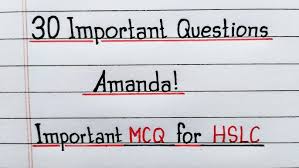 30 Important Questions
Amanda!
Important MCQ for HSLC